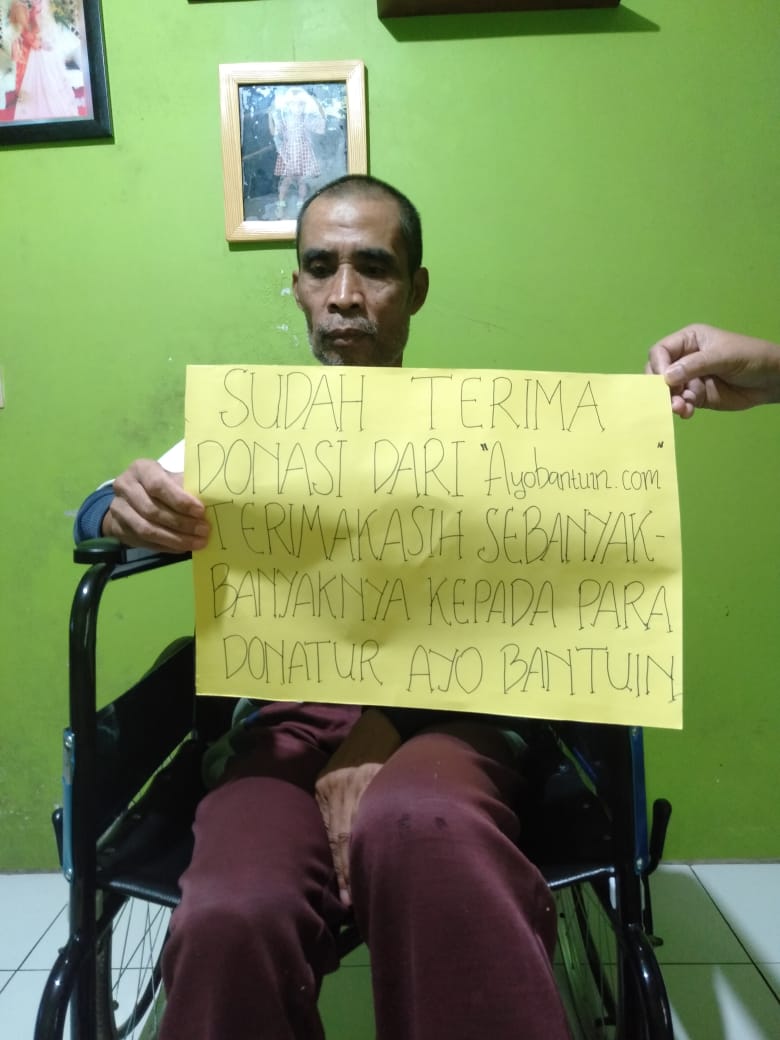 SUDAH TERIMA
DONASI DARI "Ayobantuin.com"
TERIMAKASIH SEBANYAK-
BANYAKNYA KEPADA PARA
DONATUR AYO BANTUIN